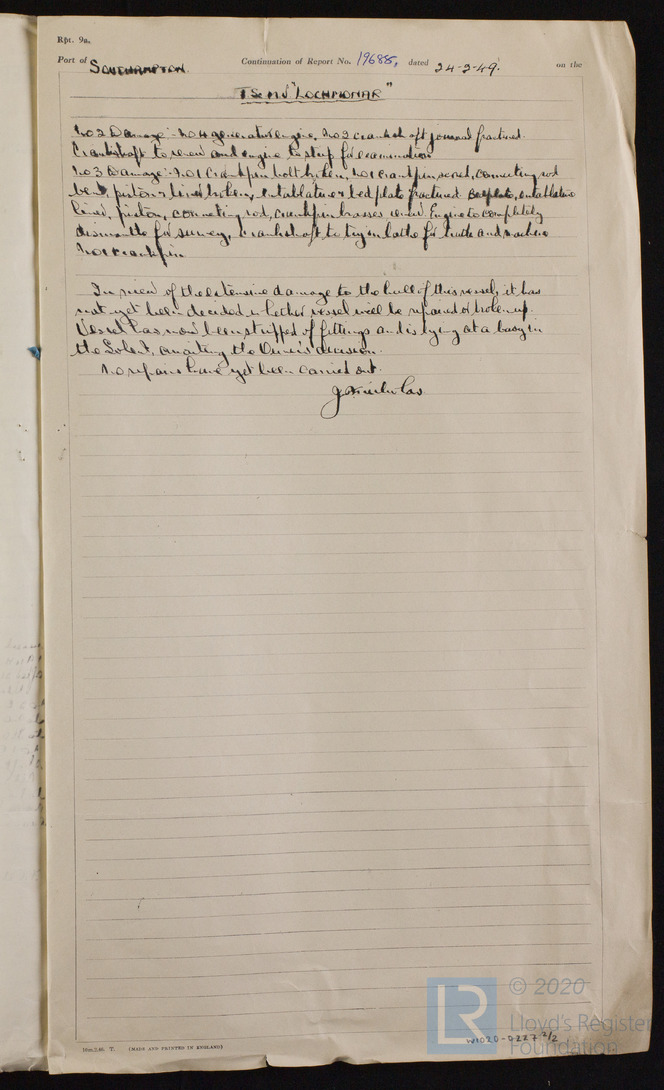 Rpt. 9a.
Port of SOUTHAMPTON. Continuation of Report No. 19685, dated 24-2-49. on the
T.S.M.V. "LOCHMONAR"
No 2 Damage:- No 4 generator engine, No 2 crankshaft journal fractured.
Crankshaft to renew and engine to strip for examination.
No 3 Damage:- No 1 Crankpin bolt broken, No 1 crankpin scored, connecting rod
bent, piston & liner broken, entablature & bedplate fractured. Bedplate, entablature
liner, piston, connecting rod, crankpin brasses renew. Engine to completely
dismantle for survey, crankshaft to try in lathe for truth and machine
No 1 crankpin
In view of the extensive damage to the hull of this vessel, it has
not yet been decided whether vessel will be repaired or broken up.
Vessel has now been stripped of fittings and is lying at a buoy in
the Solent, awaiting the Owner's decision.
No repairs have yet been carried out.
10m.2.46 T. (MADE AND PRINTED IN ENGLAND)
LR © 2020
Lloyd's Register
Foundation
W1020-0227 2/2